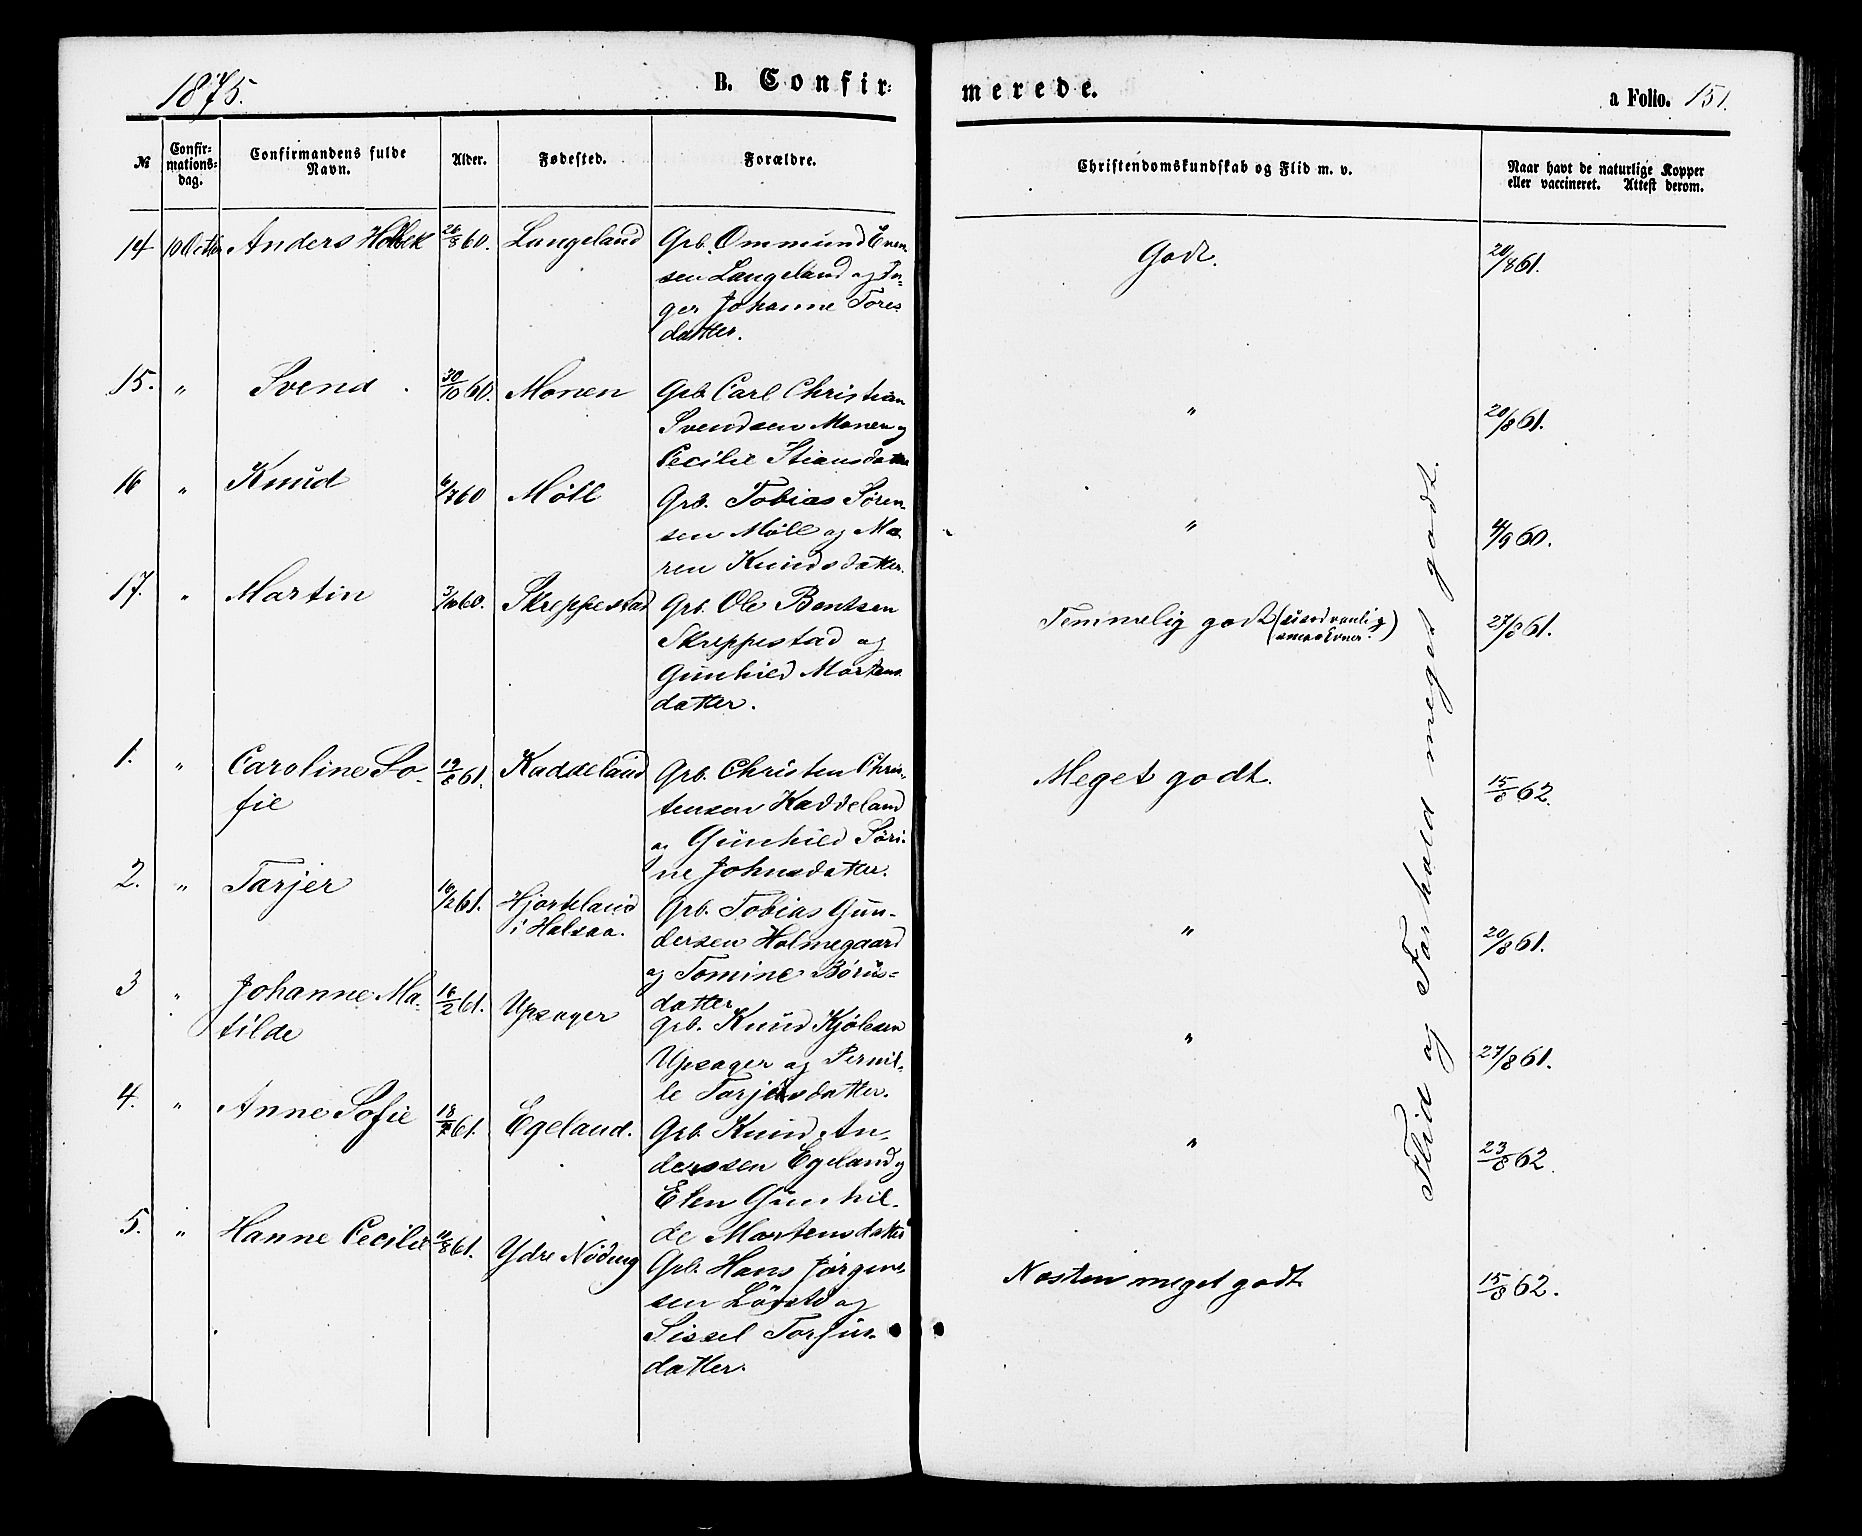 1875.
B. Confir-
merede.
a Folio. 151.
№
Confir-
mations-
dag.
Confirmandens fulde
Navn.
Alder.
Fødested.
Forældre.
Christendomskundskab og Flid m. v.
Naar havt de naturlige Kopper
eller vaccineret. Attest derom.
14 10 Octbr Anders 26/8 60. Langeland Grb. Ommund Even-
sen Langeland og In-
ger Johanne Tores-
datter.
Godt.
20/8 61.
15. " Svend 30/10 60. Monen Grb. Carl Christian
Svendsen Monen og
Cecilie Stiansdatter
"
20/8 61.
16 " Knud 6/7 60 Möll Grb. Tobias Søren-
sen Möll og Ma-
ren Knudsdatter.
"
4/9 60.
17. " Martin 3/10 60. Skreppestad Grb. Ole Bentsen
Skreppestad og
Gunhild Mortens-
datter.
Temmelig godt (usædvanlig
smaa Evner.)
27/8 61.
1. " Caroline So-
fie
19/6 61. Kaddeland Grb. Christen Chris-
tensen Kaddeland
og Gunhild Søri-
ne Johnsdatter.
Meget godt.
15/8 62.
2. " Tarjer 16/2 61. Hjorteland
i Halsaa.
Grb. Tobias Gun-
dersen Holmegaard
og Tomine Börus-
datter
"
20/8 61.
3 " Johanne Ma-
tilde
16/2 61. Upsager Grb. Knud Kjölesen
Upsager og Pernil-
le Tarjersdatter.
"
27/8 61.
4. " Anne Sofie 61. Egeland. Grb. Knud An-
derssen Egeland og
Elen Gunhil-
de Mortensdatter
"
23/8 62.
5. " Hanne Cecilie 11/8 61. Ydre Nöding Grb. Hans Jørgen-
sen og
Sissel Torjus-
datter.
Næsten meget godt
15/8 62.
Flid og Forhold meget godt.